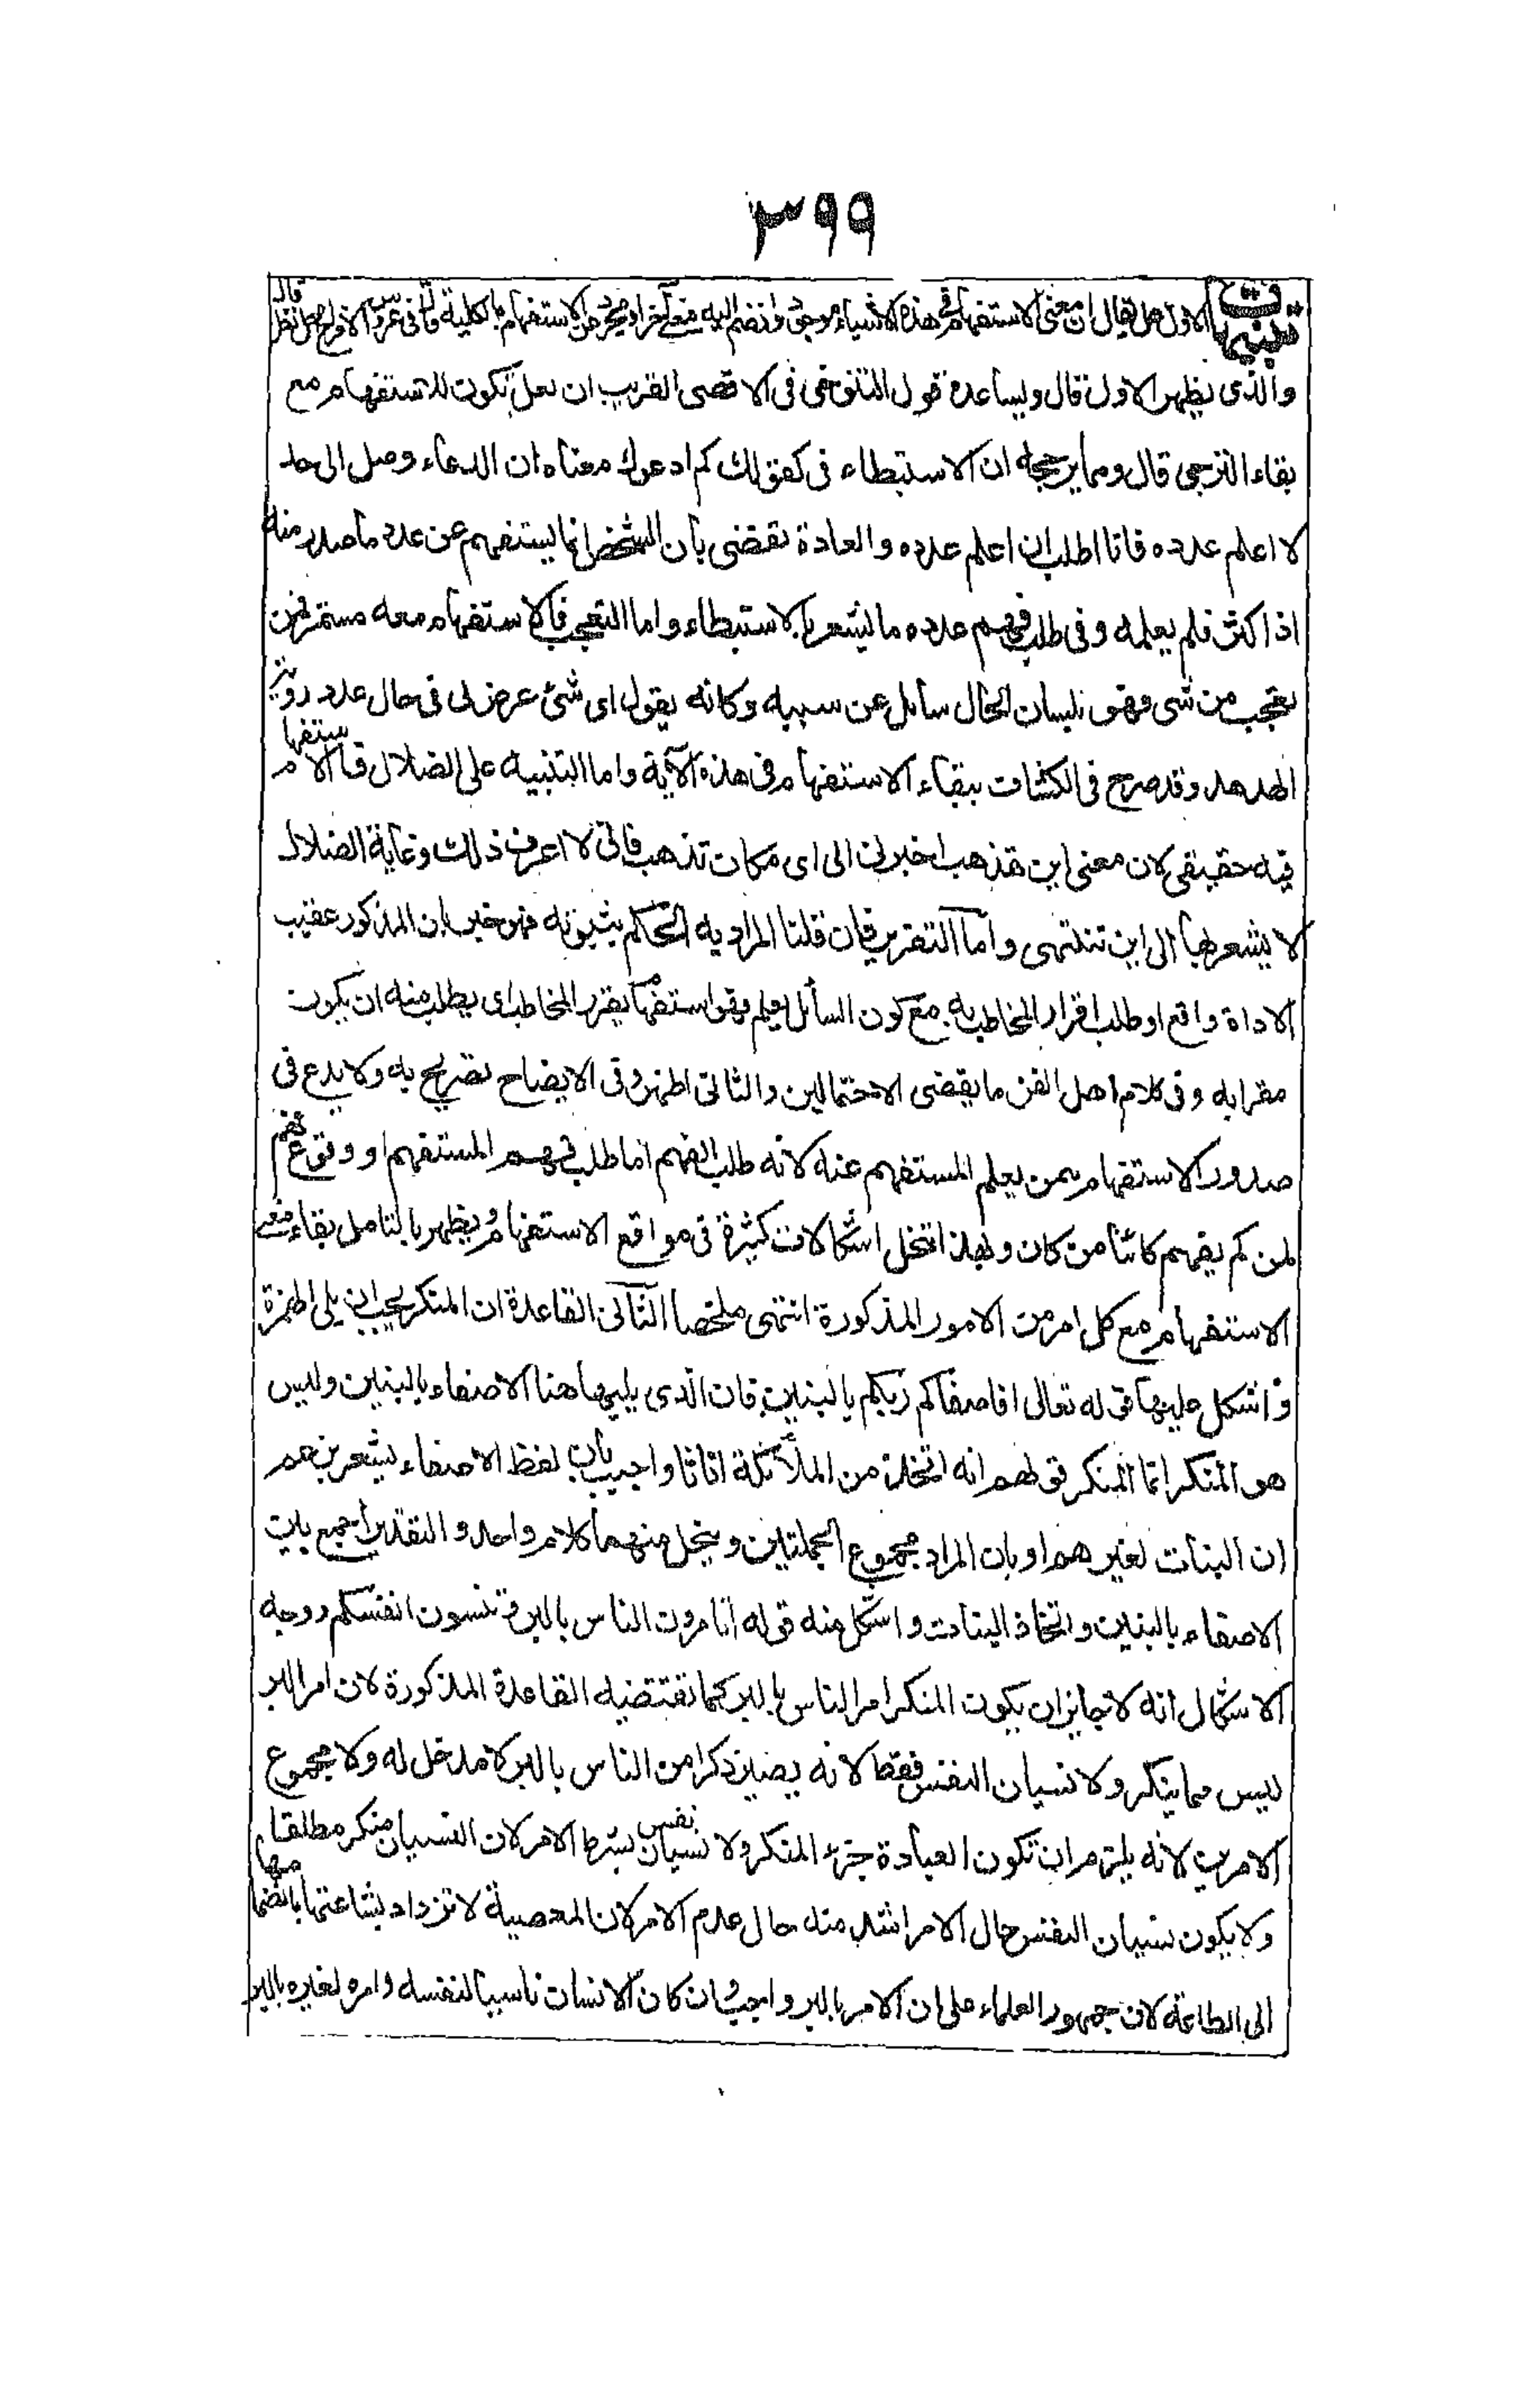 ٣٩٩
تنبيهات الاول هل يقال ان معنى الاستفهام فى هذه الاشياء موجود وانضم اليه معنى آخر او مجرد عن الاستفهام بالكلية قال فى عروس الافراح محل نظر قال
والذى يظهر الاول قال ويساعده قول التنوخى فى الاقصى القريب ان لعل تكون للاستفهام مع
بقاء الترجى قال ومما يرجحه ان الاستبطاء فى كقولك كم ادعوك معناه ان الدعاء وصل الى حد
لا اعلم عدده فانا اطلب ان اعلم عدده والعادة تقضى بان الشخص انما يستفهم عن عدد ما صدر منه
اذا كثر فلم يعلمه وفى طلب فهم عدده ما يشعر بالاستبطاء واما التعجب فالاستفهام معه مستمر فمن
تعجب من شى فهو بلسان الحال سائل عن سببه وكانه يقول اى شئ عرض لى فى حال عدد روية
الهدهد وقد صرح فى الكشاف ببقاء الاستفهام فى هذه الآية واما التنبيه على الضلال فالاستفهام
فيه حقيقى لان معنى اين تذهب اخبرنى الى اى مكان تذهب فانى لا اعرف ذلك وغاية الضلال
لا يشعر بها الى اين تنتهى واما التقرير فان قلنا المراد به الحكم بثبوته فهو خبر بان المذكور عقيب
الاداة واقع او طلب اقرار المخاطب به مع كون السائل يعلم فهو استفهام يقرر المخاطب اى يطلب منه ان يكون
مقرا به وفى كلام اهل الفن ما يقضى الاحتمالين والثانى اظهر وفى الايضاح تصريح به ولا بدع فى
صدور الاستفهام ممن يعلم المستفهم عنه لانه طلب الفهم اما طلب فهم المستفهم او وقوع فهم
لمن لم يفهم كائنا من كان وبهذا تنحل اشكالات كثيرة فى مواقع الاستفهام ويظهر بالتامل بقاء معنى
الاستفهام مع كل امر من الامور المذكورة انتهى ملخصا الثانى القاعدة ان المنكر يجب ان يلى الهمزة
واشكل عليها قوله تعالى افاصفاكم ربكم بالبنين فان الذى يليها هنا الاصفاء بالبنين وليس
هو المنكر انما المنكر قولهم انه اتخذ من الملائكة اناثا واجيب بان لفظ الاصفاء يشعر بزعم
ان البنات لغيرهم او بان المراد مجموع الجملتين وينحل منهما كلام واحد والتقدير اجمع بين
الاصفاء بالبنين واتخاذ البنات واشكل منه قوله اتامرون الناس بالبر وتنسون انفسكم ووجه
الاشكال انه لا جائز ان يكون المنكر امر الناس بالبر كما تقتضيه القاعدة المذكورة لان امر البر
ليس مما ينكر ولا نسيان النفس فقط لانه يصير ذكر امر الناس بالبر لا مدخل له ولا مجموع
الامرين لانه يلزم ان تكون العبادة جزء المنكر ولا نسيان نفس بشرط الامر لان النسيان منكر مطلقا
ولا يكون نسيان النفس حال الامر اشد منه حال عدم الامر لان المعصية لا تزداد بشاعتها بانضمامها
الى الطاعة لان جمهور العلماء على ان الامر بالبر واجب وان كان الانسان ناسيا لنفسه وامره لغيره بالبر